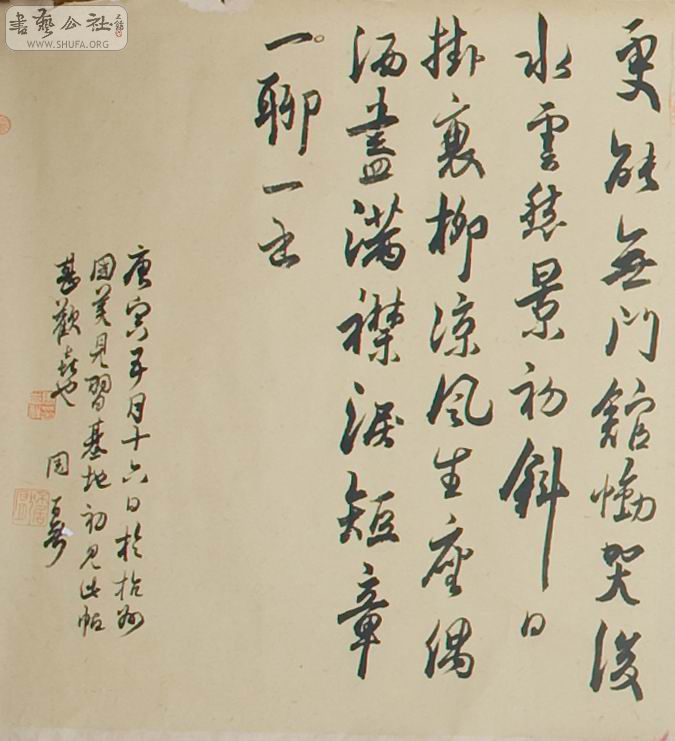 書藝公社
WWW.SHUFA.ORG
更能無門館慟哭後
水雲愁景初斜日
掛衰柳涼風生座偶
洒盡滿襟淚短章
一聊一書
庚寅五月十六日於杭州
國美見習基地初見此帖
甚歡喜也 周